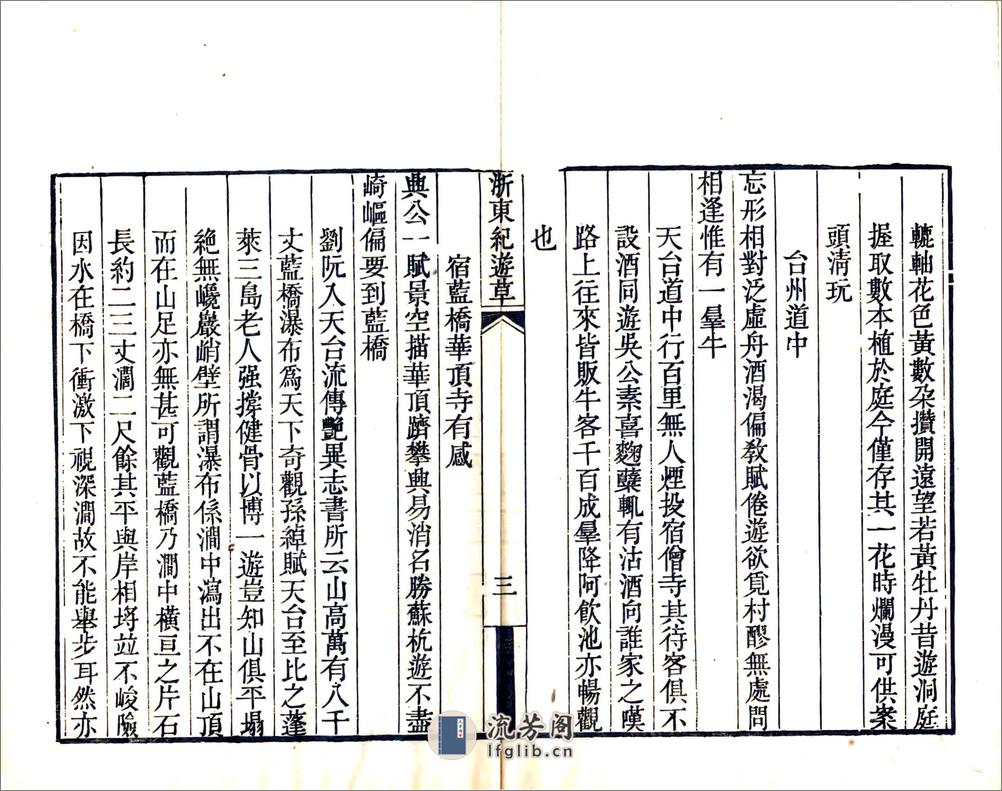 轆軸花色黃數朵攢開遠望若黃牡丹昔遊洞庭
握取數本植於庭今僅存其一花時爛漫可供案
頭淸玩
台州道中
忘形相對泛虛舟酒渴偏教賦倦遊欲覓村醪無處問
相逢惟有一羣牛
天台道中行百里無人煙投宿僧寺其待客俱不
設酒同遊吳公素喜麴蘗輒有沽酒向誰家之嘆
路上往來皆販牛客千百成羣降阿飲池亦暢觀
也
浙東紀遊草
三
宿藍橋華頂寺有感
興公一賦景空描華頂躋攀興易消名勝蘇杭遊不盡
崎嶇偏要到藍橋
劉阮入天台流傳艷異志書所云山高萬有八千
丈藍橋瀑布爲天下奇觀孫綽賦天台至比之蓬
萊三島老人强撐健骨以博一遊豈知山俱平塌
絶無巉巖峭壁所謂瀑布係澗中瀉出不在山頂
而在山足亦無甚可觀藍橋乃澗中橫亘之片石
長約二三丈濶二尺餘其平與岸相埓竝不峻險
因水在橋下衝激下視深澗故不能舉步耳然亦
流芳阁
lfglib.cn